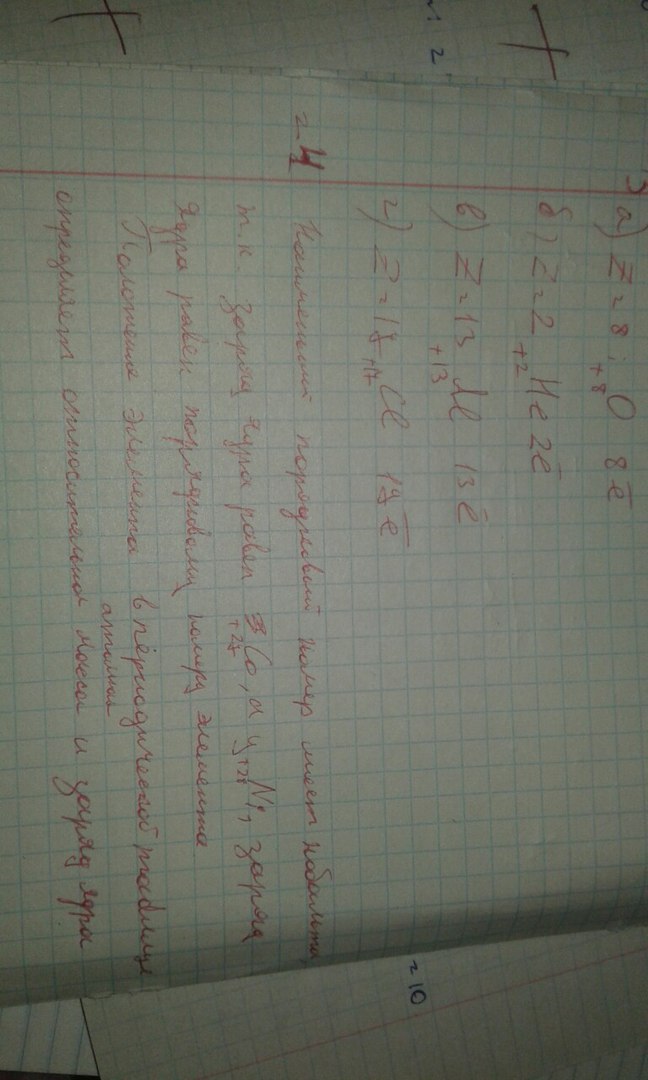 3
а) Z = 8 ; +8 O 8ē
б) Z = 2 +2 He 2ē
в) Z = 13 +13 Al 13ē
г) Z = 17 +17 Cl 17ē
= 4
Наименьший порядковый номер имеет кобальт,
т.к. заряд ядра равен +27 Co, а у +28 Ni, заряд
ядра равен порядковому номеру элемента
Положение элемента в периодической таблице
атомная
определяет относительная масса и заряд ядра
2
= 10